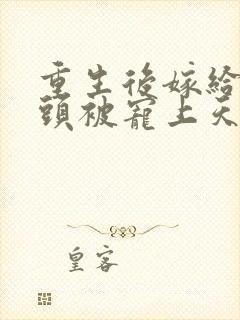 重生後嫁給
頭被寵上天
皇客